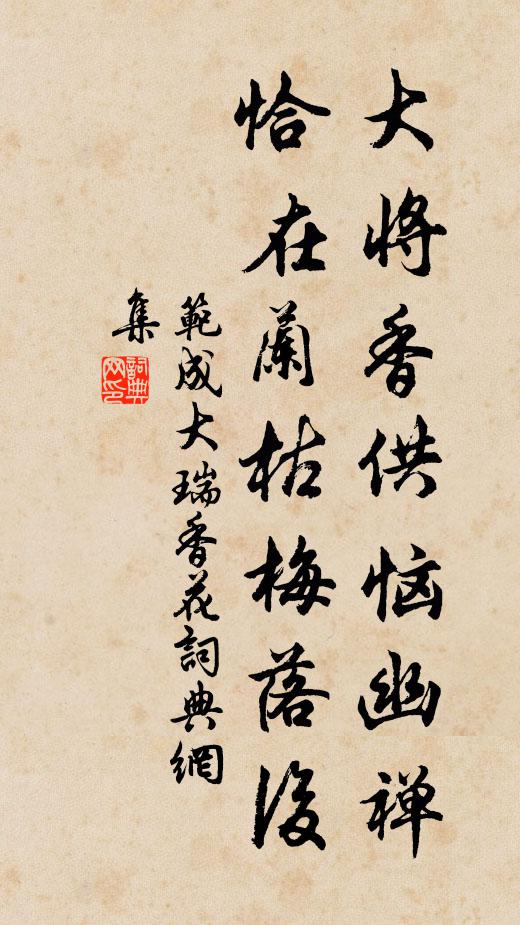 大將香供恼幽禅
恰在蘭枯梅落後
範成大瑞香花詞典網
集
詞典
网印